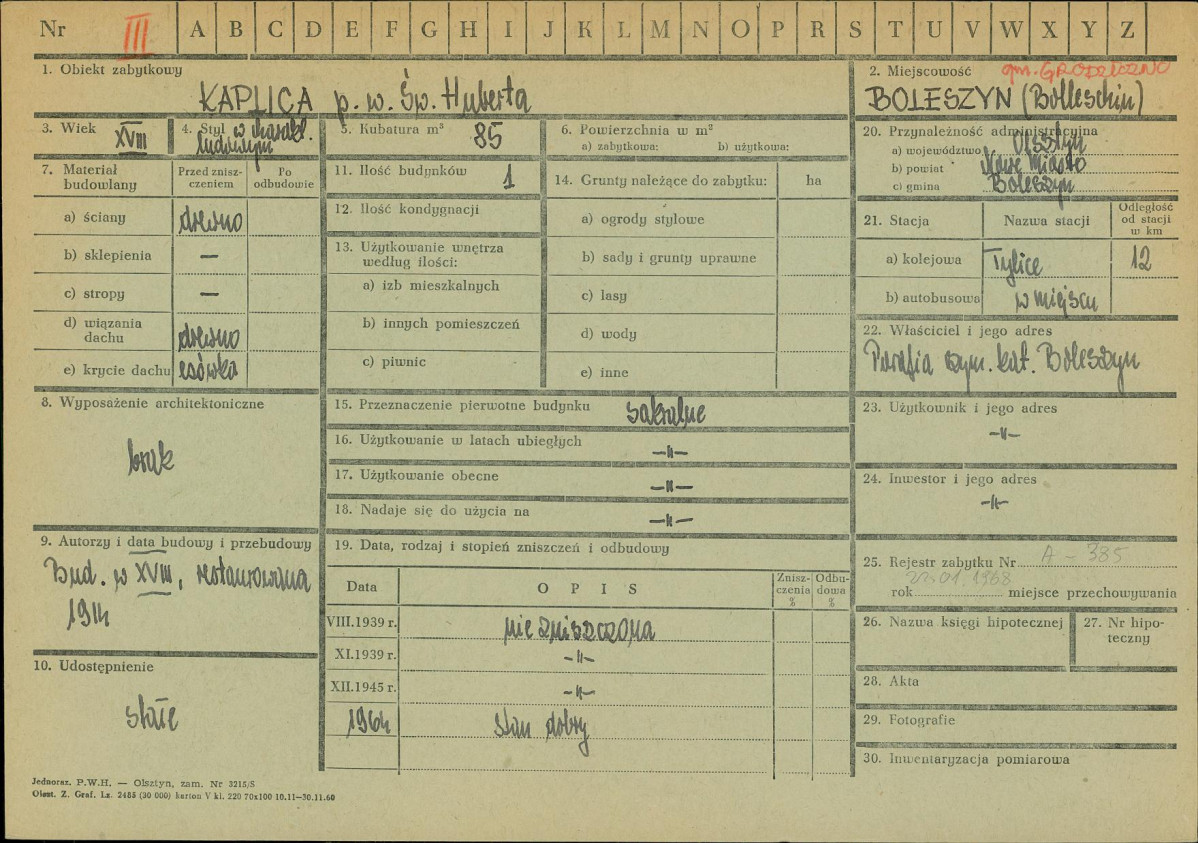 Nr III A B C D E F G H I J K L M N O P R S T U V W X Y Z
1. Obiekt zabytkowy
KAPLICA p. w. Św. Huberta
2. Miejscowość gm. GRODZICZNO
BOLESZYN (Bolleschin)
3. Wiek XVIII
4. Styl w charakt.
ludowym
5. Kubatura m³ 85
6. Powierzchnia w m²
a) zabytkowa: b) użytkowa:
7. Materiał budowlany
Przed znisz-
czeniem
Po
odbudowie
a) ściany drewno
b) sklepienia —
c) stropy —
d) wiązania
dachu drewno
e) krycie dachu esówka
8. Wyposażenie architektoniczne
brak
9. Autorzy i data budowy i przebudowy
Bud. w XVIII, restaurowana
1914
10. Udostępnienie
stałe
11. Ilość budynków 1
12. Ilość kondygnacji
13. Użytkowanie wnętrza
według ilości:
a) izb mieszkalnych
b) innych pomieszczeń
c) piwnic
14. Grunty należące do zabytku: ha
a) ogrody stylowe
b) sady i grunty uprawne
c) lasy
d) wody
e) inne
15. Przeznaczenie pierwotne budynku sakralne
16. Użytkowanie w latach ubiegłych —"—
17. Użytkowanie obecne —"—
18. Nadaje się do użycia na —"—
19. Data, rodzaj i stopień zniszczeń i odbudowy
Data
OPIS
Znisz-
czenia
%
Odbu-
dowa
%
VIII.1939 r. nie zniszczona
XI.1939 r. -"-
XII.1945 r. -"-
1964 stan dobry
20. Przynależność administracyjna
a) województwo Olsztyn
b) powiat Nowe Miasto
c) gmina Boleszyn
21. Stacja
Nazwa stacji
Odległość
od stacji
w km
a) kolejowa Tylice 12
b) autobusowa w miejscu
22. Właściciel i jego adres
Parafia rzym. kat. Boleszyn
23. Użytkownik i jego adres
-"-
24. Inwestor i jego adres
-"-
25. Rejestr zabytku Nr A - 385
rok 01.1968 miejsce przechowywania
26. Nazwa księgi hipotecznej
27. Nr hipo-
teczny
28. Akta
29. Fotografie
30. Inwentaryzacja pomiarowa
Jednoraz. P.W.H. — Olsztyn, zam. Nr 3215/S
Olszt. Z. Graf. Lz. 2485 (30 000) karton V kl. 220 70x100 10.11—30.11.60